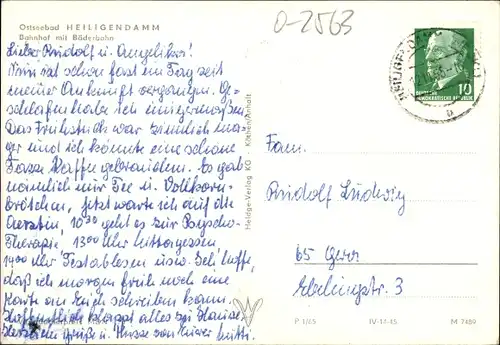 Ostseebad HEILIGENDAMM
Bahnhof mit Bäderbahn
0-2563
Lieber Rudolf u. Angelika!
Nun ist schon fast ein Tag seit
meiner Ankunft vergangen. Ge-
schlafen habe ich einigermaßen.
Das Frühstück war ziemlich ma-
ger und ich könnte eine schöne
Tasse Kaffee gebrauchen. Es gab
nämlich nur Tee u. Vollkorn-
brötchen, jetzt warte ich auf die
Aerztin, 10³⁰ geht es zur Psycho-
Therapie 13⁰⁰ Uhr Mittagessen,
14⁰⁰ Uhr Testablesen usw. Ich hoffe,
daß ich morgen früh noch eine
Karte an Euch schreiben kann.
Hoffentlich klappt alles bei Hause
Herzliche Grüße u. Küsse von Eurer Mutti.
Heldge-Verlag KG · Köthen/Anhalt
DEUTSCHE
DEMOKRATISCHE REPUBLIK
10
b
Fam.
Rudolf Ludwig
65 Gera
Ebelingstr. 3
P 1/65
IV-14-45
M 7489